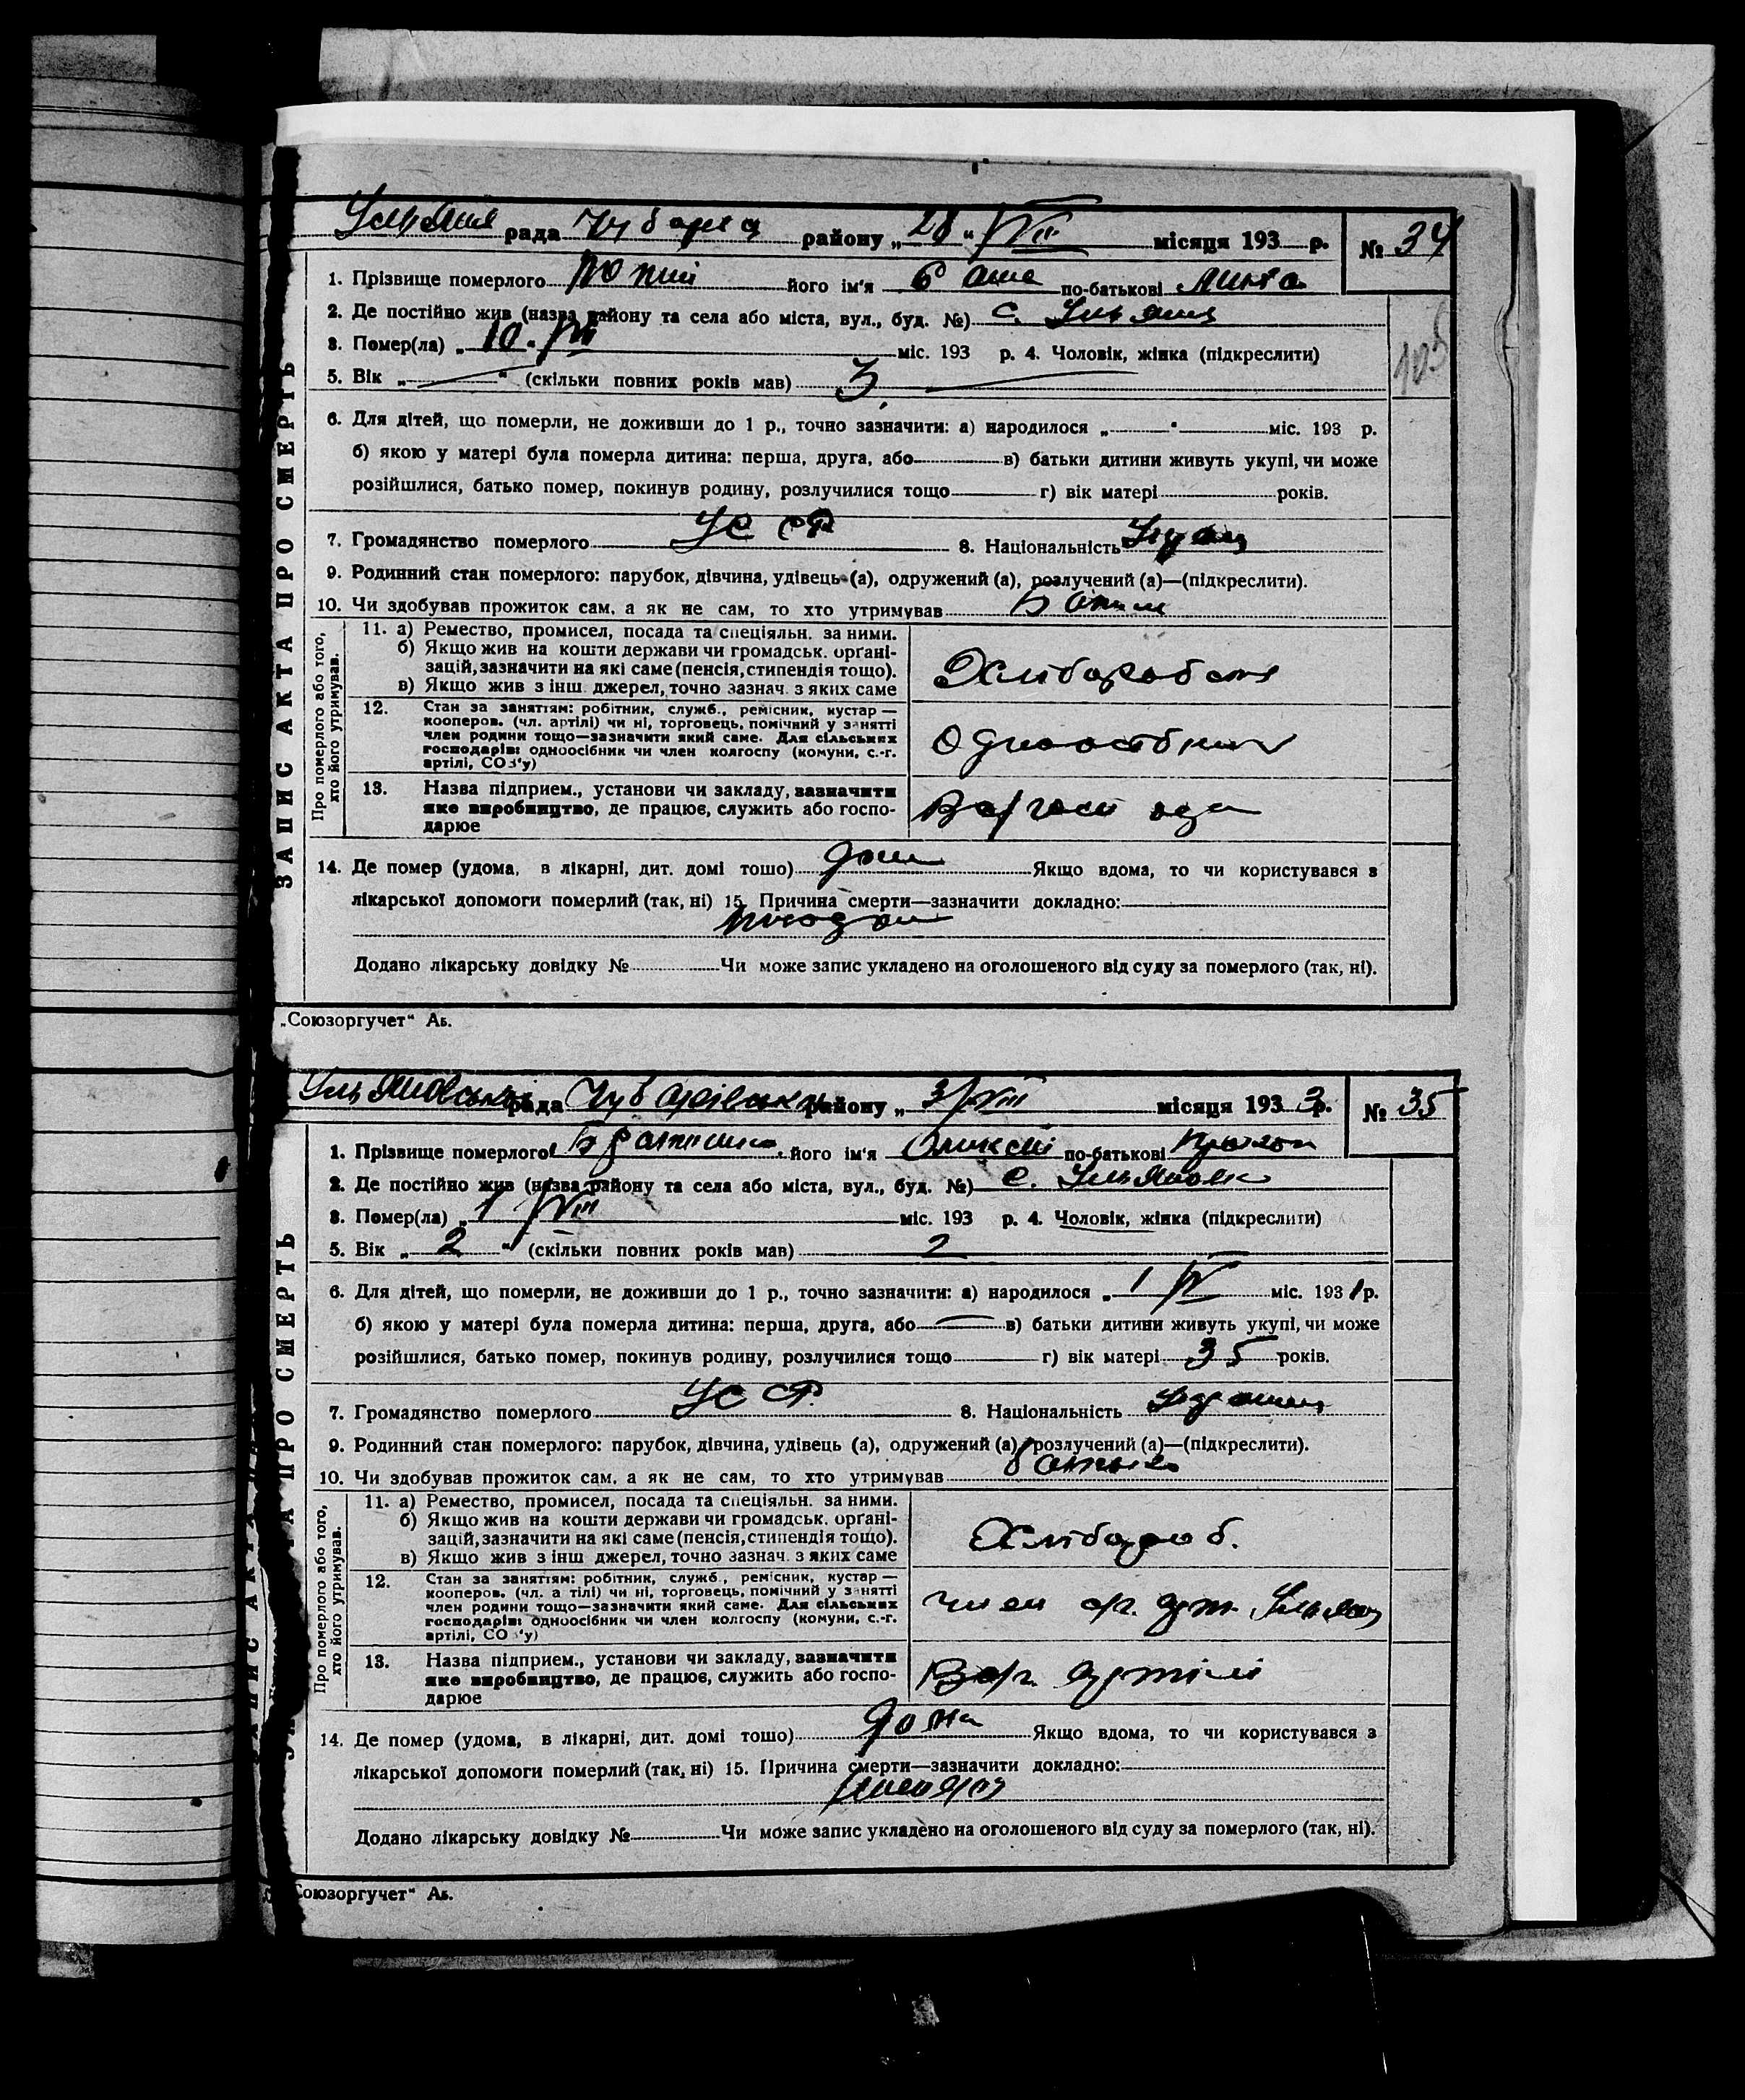 рада району „ 28 “ VII місяця 193 р. № 34
1. Прізвище померлого його ім'я по-батькові
2. Де постійно жив (назва району та села або міста, вул., буд. №) с.
3. Помер(ла) „ 10 “ міс. 193 р. 4. Чоловік, жінка (підкреслити)
5. Вік „ “ (скільки повних років мав) 3
105
6. Для дітей, що померли, не доживши до 1 р., точно зазначити: а) народилося „ “ міс. 193 р.
б) якою у матері була померла дитина: перша, друга, або в) батьки дитини живуть укупі, чи може
розійшлися, батько помер, покинув родину, розлучилися тощо г) вік матері років.
7. Громадянство померлого УССР 8. Національність
9. Родинний стан померлого: парубок, дівчина, удівець (а), одружений (а), розлучений (а)—(підкреслити).
10. Чи здобував прожиток сам, а як не сам, то хто утримував
ЗАПИС АКТА ПРО СМЕРТЬ
Про померлого або того,
хто його утримував.
11. а) Ремество, промисел, посада та спеціяльн. за ними.
б) Якщо жив на кошти держави чи громадськ. орґані-
зацій, зазначити на які саме (пенсія, стипендія тощо).
в) Якщо жив з інш. джерел, точно зазнач. з яких саме
12. Стан за заняттям: робітник, служб., ремісник, кустар—
кооперов. (чл. артілі) чи ні, торговець, помічний у занятті
член родини тощо—зазначити який саме. Для сільських
господарів: одноосібник чи член колгоспу (комуни, с.-г.
артілі, СОЗ'у)
Одноосібник
13. Назва підприєм., установи чи закладу, зазначити
яке виробництво, де працює, служить або госпо-
дарює
14. Де помер (удома, в лікарні, дит. домі тощо) дома Якщо вдома, то чи користувався з
лікарської допомоги померлий (так, ні) 15. Причина смерти—зазначити докладно:
Додано лікарську довідку № Чи може запис укладено на оголошеного від суду за померлого (так, ні).
„Союзоргучет“ Аб.
Ульяновської рада Чубарівськ району „ 3/VIII місяця 193 3 р. № 35
1. Прізвище померлого його ім'я Олексій по-батькові
2. Де постійно жив (назва району та села або міста, вул., буд. №) с. Ульяновк
3. Помер(ла) „ 1 VIII міс. 193 р. 4. Чоловік, жінка (підкреслити)
5. Вік „ 2 “ (скільки повних років мав) 2
6. Для дітей, що померли, не доживши до 1 р., точно зазначити: а) народилося „ 1 IV міс. 193 1 р.
б) якою у матері була померла дитина: перша, друга, або в) батьки дитини живуть укупі, чи може
розійшлися, батько помер, покинув родину, розлучилися тощо г) вік матері 35 років.
7. Громадянство померлого УССР. 8. Національність
9. Родинний стан померлого: парубок, дівчина, удівець (а), одружений (а), розлучений (а)—(підкреслити).
10. Чи здобував прожиток сам, а як не сам, то хто утримував батько
Про померлого або того,
хто його утримував.
11. а) Ремество, промисел, посада та спеціяльн. за ними.
б) Якщо жив на кошти держави чи громадськ. орґані-
зацій, зазначити на які саме (пенсія, стипендія тощо).
в) Якщо жив з інш джерел, точно зазнач. з яких саме
Хлібороб.
12. Стан за заняттям: робітник, служб., ремісник, кустар—
кооперов. (чл. а тілі) чи ні, торговець, помічний у занятті
член родини тощо—зазначити який саме. Для сільських
господарів: одноосібник чи член колгоспу (комуни, с.-г.
артілі, СО 'у)
член с/г. арт.
13. Назва підприєм., установи чи закладу, зазначити
яке виробництво, де працює, служить або госпо-
дарює
В с/г. артілі
14. Де помер (удома, в лікарні, дит. домі тощо) дома Якщо вдома, то чи користувався з
лікарської допомоги померлий (так, ні) 15. Причина смерти—зазначити докладно:
Додано лікарську довідку № Чи може запис укладено на оголошеного від суду за померлого (так, ні).
Союзоргучет“ Аб.